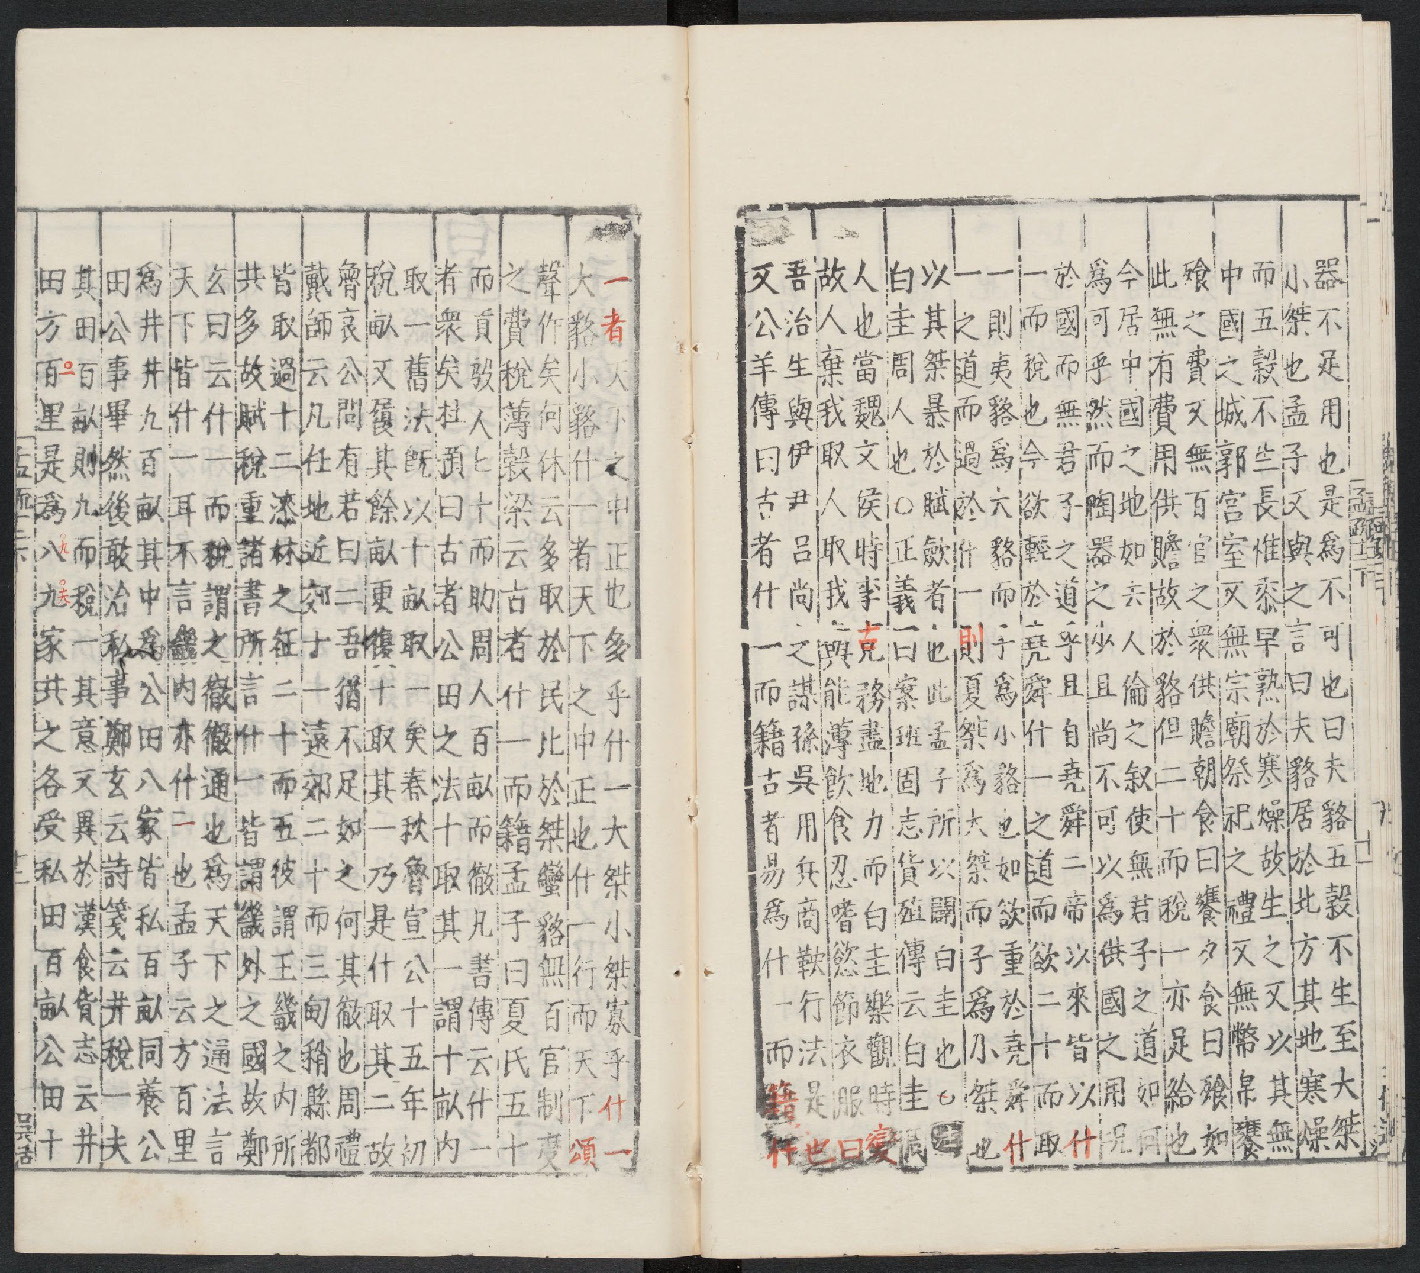 器不足用也是為不可也曰夫貉五穀不生至大桀
小桀也孟子又與之言曰夫貉居於此方其地寒燥
而五穀不生長惟黍早熟於寒燥故生之又以其無
中國之城郭宮室又無宗廟祭祀之禮又無幣帛饔
飧之費又無百官之衆供贍朝食曰饔夕食曰飧如
此無有費用供贍故於貉但二十而稅一亦足給也
今居中國之地如去人倫之叙使無君子之道如何
為可乎然而陶器之少且尚不可以為供國之用況
於國而無君子之道乎且自堯舜二帝以來皆以什
一而稅也今欲輕於堯舜什一之道而欲二十而取
一則夷貉為大貉而子為小貉也如欲重於堯舜什
一之道而過於什一則夏桀為大桀而子為小桀也
以其桀暴於賦斂者也此孟子所以闢白圭也○
白圭周人也○正義曰案班固志貨殖傳云白圭
人也當魏文侯時李克務盡地力而白圭樂觀時變
故人棄我取人取我與能薄飲食忍嗜慾節衣服曰
吾治生與伊尹呂尚之謀孫吳用兵商鞅行法是也
又公羊傳曰古者什一而籍古者曷為什一而籍什
一者天下之中正也多乎什一大桀小桀寡乎什一
大貉小貉什一者天下之中正也什一行而天下頌
聲作矣何休云多取於民比於桀蠻貉無百官制度
之費稅薄穀梁云古者什一而籍孟子曰夏氏五十
而貢殷人七十而助周人百畝而徹凡書傳云什一
者衆矣杜預曰古者公田之法十取其一謂十畝內
取一舊法既以十畝取一矣春秋魯宣公十五年初
稅畝又履其餘畝更復十取其一乃是什取其二故
魯哀公問有若曰二吾猶不足如之何其徹也周禮
戴師云凡任地近郊十一遠郊二十而三甸稍縣都
皆取過十二漆林之征二十而五彼謂王畿之內所
共多故賦稅重諸書所言什一皆謂畿外之國故鄭
玄曰云什一而稅謂之徹徹通也為天下之通法言
天下皆什一耳不言畿內亦什一也孟子云方百里
為井井九百畝其中為公田八家皆私百畝同養公
田公事畢然後敢治私事鄭玄云詩箋云井稅一夫
其田百畝則九而稅一其意又異於漢食貨志云井
田方百里是為八九家共之各受私田百畝公田十